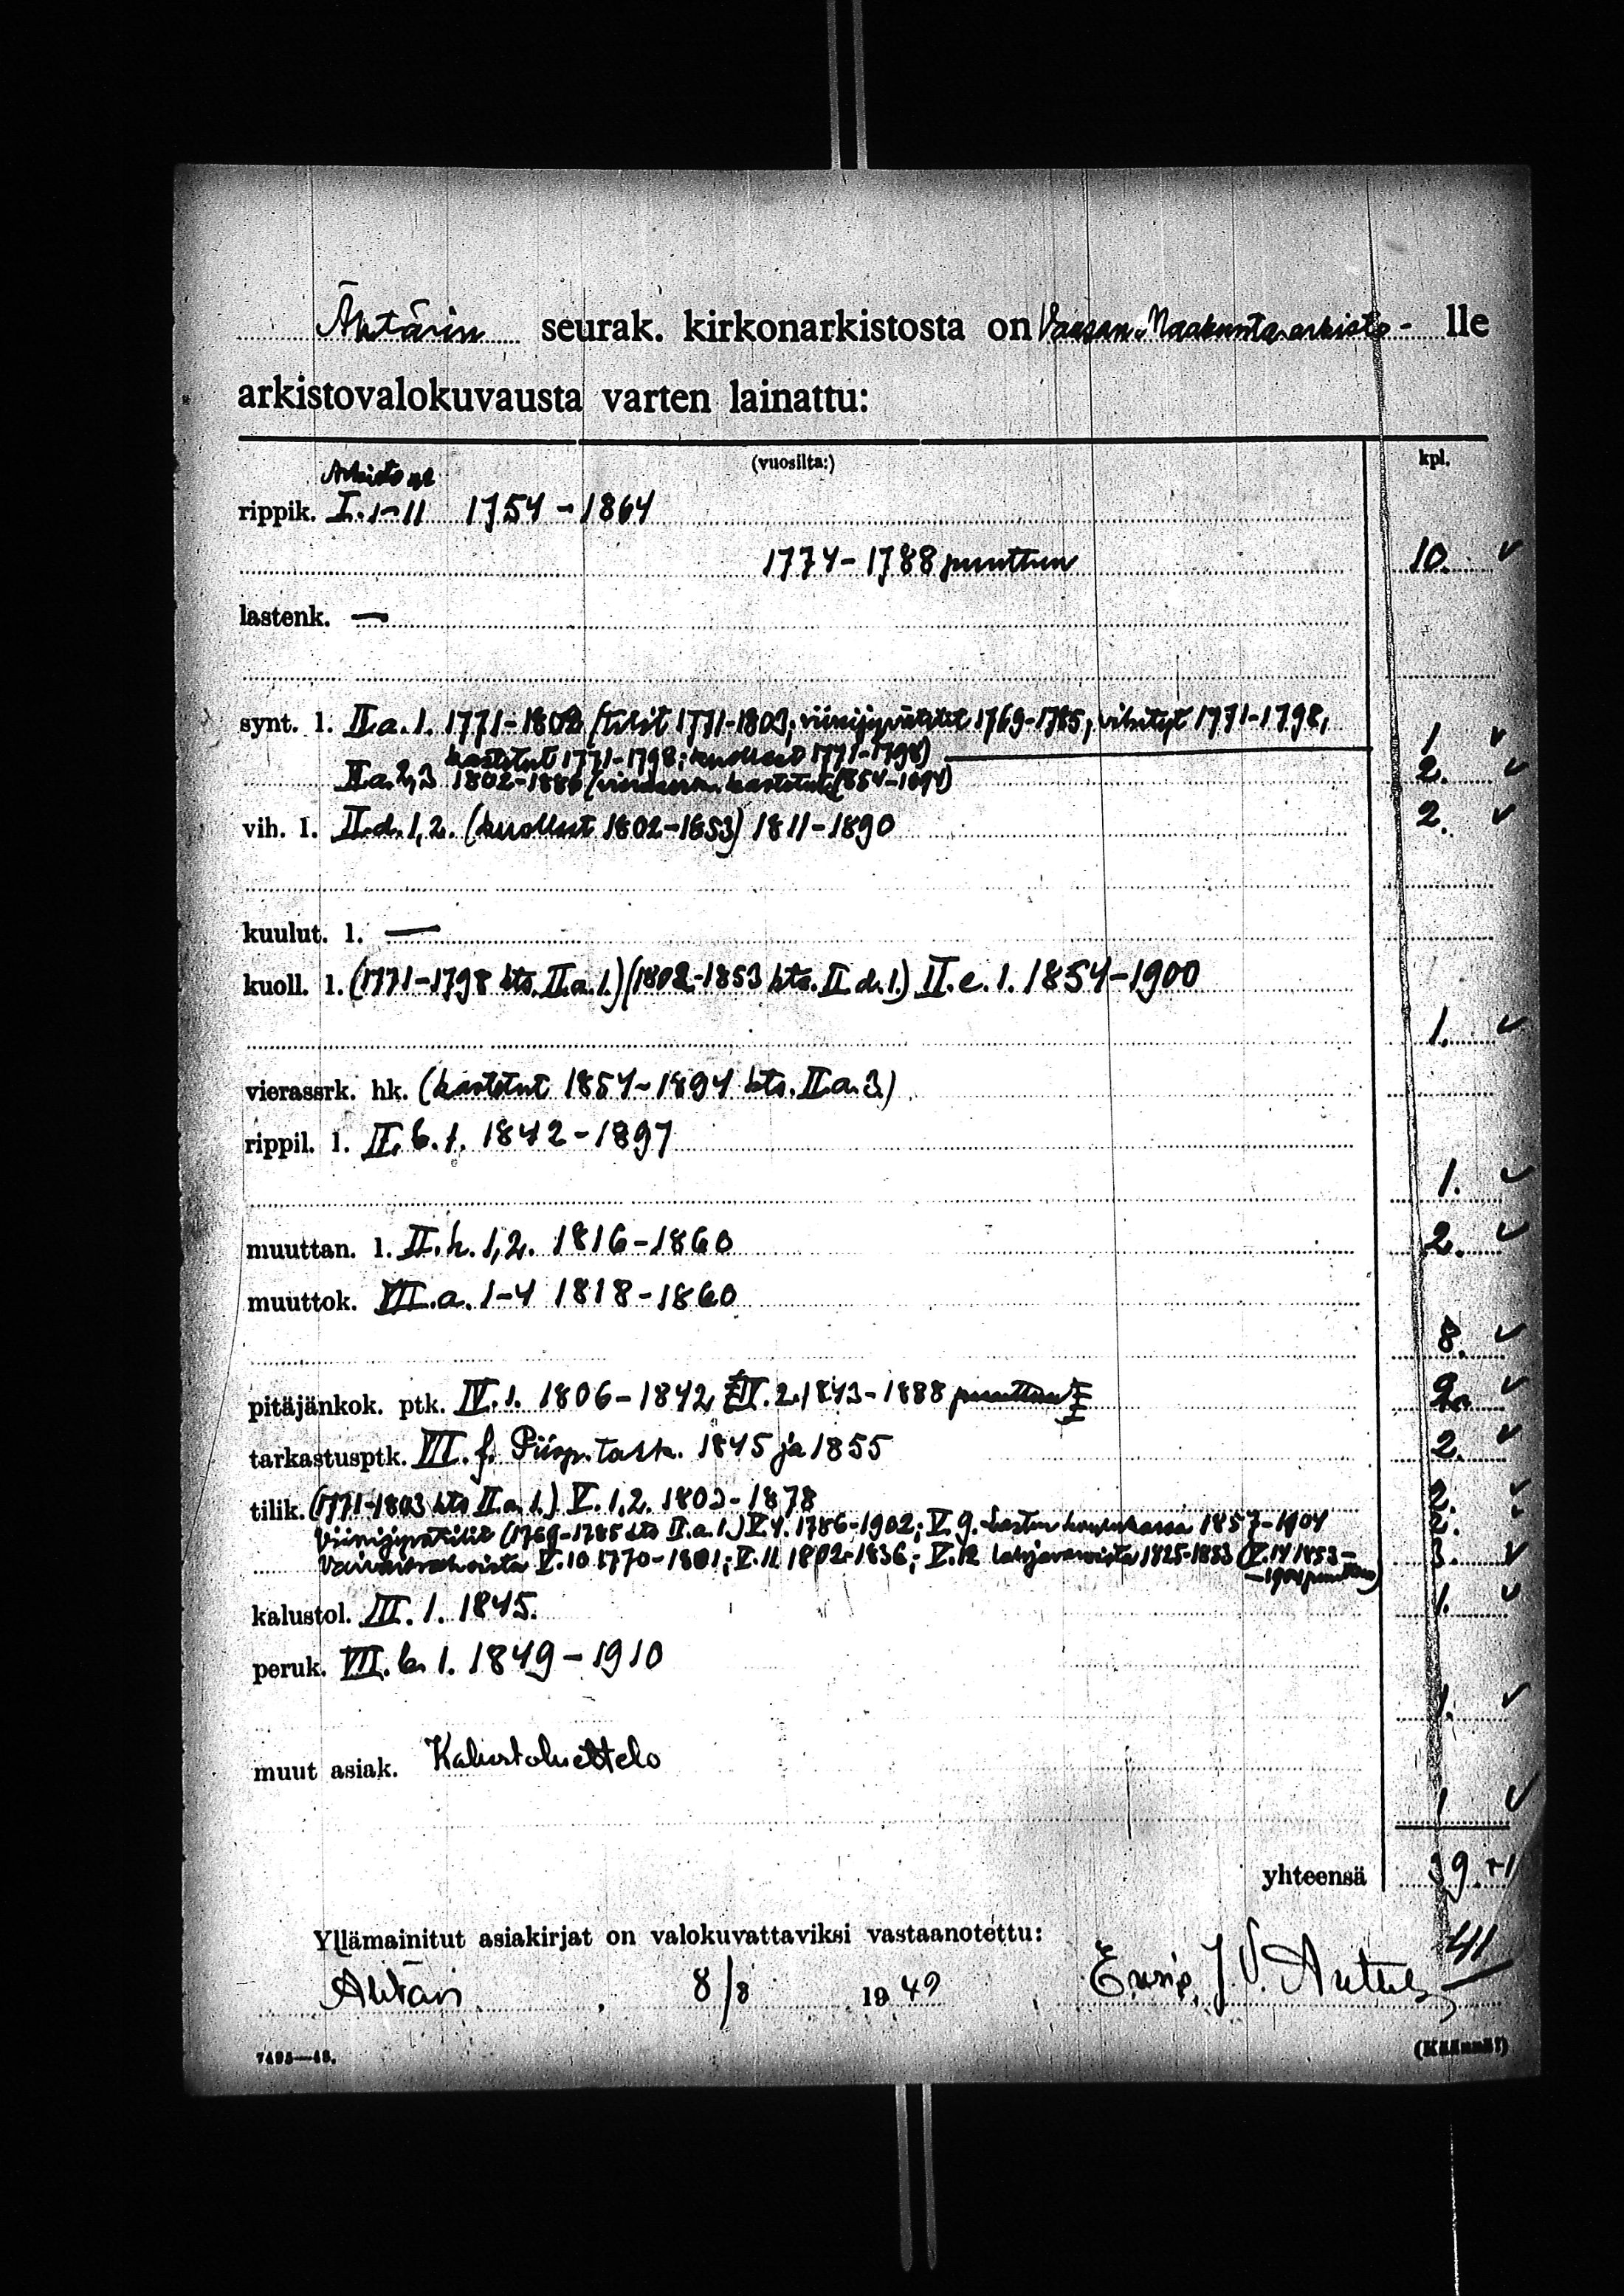 Ähtärin seurak. kirkonarkistosta on Vaasan Maakunta-arkisto - lle
arkistovalokuvausta varten lainattu:
(vuosilta:) kpl.
Arkisto nr
rippik. I. 1-11 1754 - 1864
1774 - 1788 puuttuu 10. ✓
lastenk. —
synt. l. II.a.1. 1771-1802 (tilit 1771-1803; viinijyvätilit 1769-1785, vihityt 1771-1798,
kastetut 1771-1798; kuolleet 1771-1798) 1 ✓
II.a.2,3 1802-1886 (vierassrk. kastetut 1854-1894) 2. ✓
vih. l. II.d.1,2. (kuolleet 1802-1853) 1811-1890 2. ✓
kuulut. l. —
kuoll. l. (1771-1798 kts. II.a.1.) (1802-1853 kts. II.d.1.) II.e.1. 1854-1900
1. ✓
vierassrk. hk. (kastetut 1854-1894 kts. II.a.3.)
rippil. l. II.b.1. 1842-1897
1. ✓
muuttan. l. II.h.1,2. 1816-1860 2. ✓
muuttok. VII.a.1-4 1818-1860
8. ✓
pitäjänkok. ptk. IV.1. 1806-1842 IV.2. 1843-1888 puuttuu 2. ✓
tarkastusptk. VII.f. Piisp. tark. 1845 ja 1855 2. ✓
tilik. (1771-1803 kts II.a.1.) V.1,2. 1803-1878 2. ✓
Viinijyvätilit (1769-1785 kts II.a.1.) V.4. 1786-1902; V.9. Lasten koulukassa 1857-1904 2.
V.10 1770-1801; V.11. 1802-1836; V.12 1825-1853 (V.14 1853- 3. ✓
-1904 puuttuu)
kalustol. III.1. 1845. 1. ✓
peruk. VII.b.1. 1849-1910
1. ✓
muut asiak. Kalustoluettelo
1 ✓
yhteensä 39.+1
Yllämainitut asiakirjat on valokuvattaviksi vastaanotettu: 41
Ähtäri, 8/8 1949 J. V.
7495—48. (Käännä!)